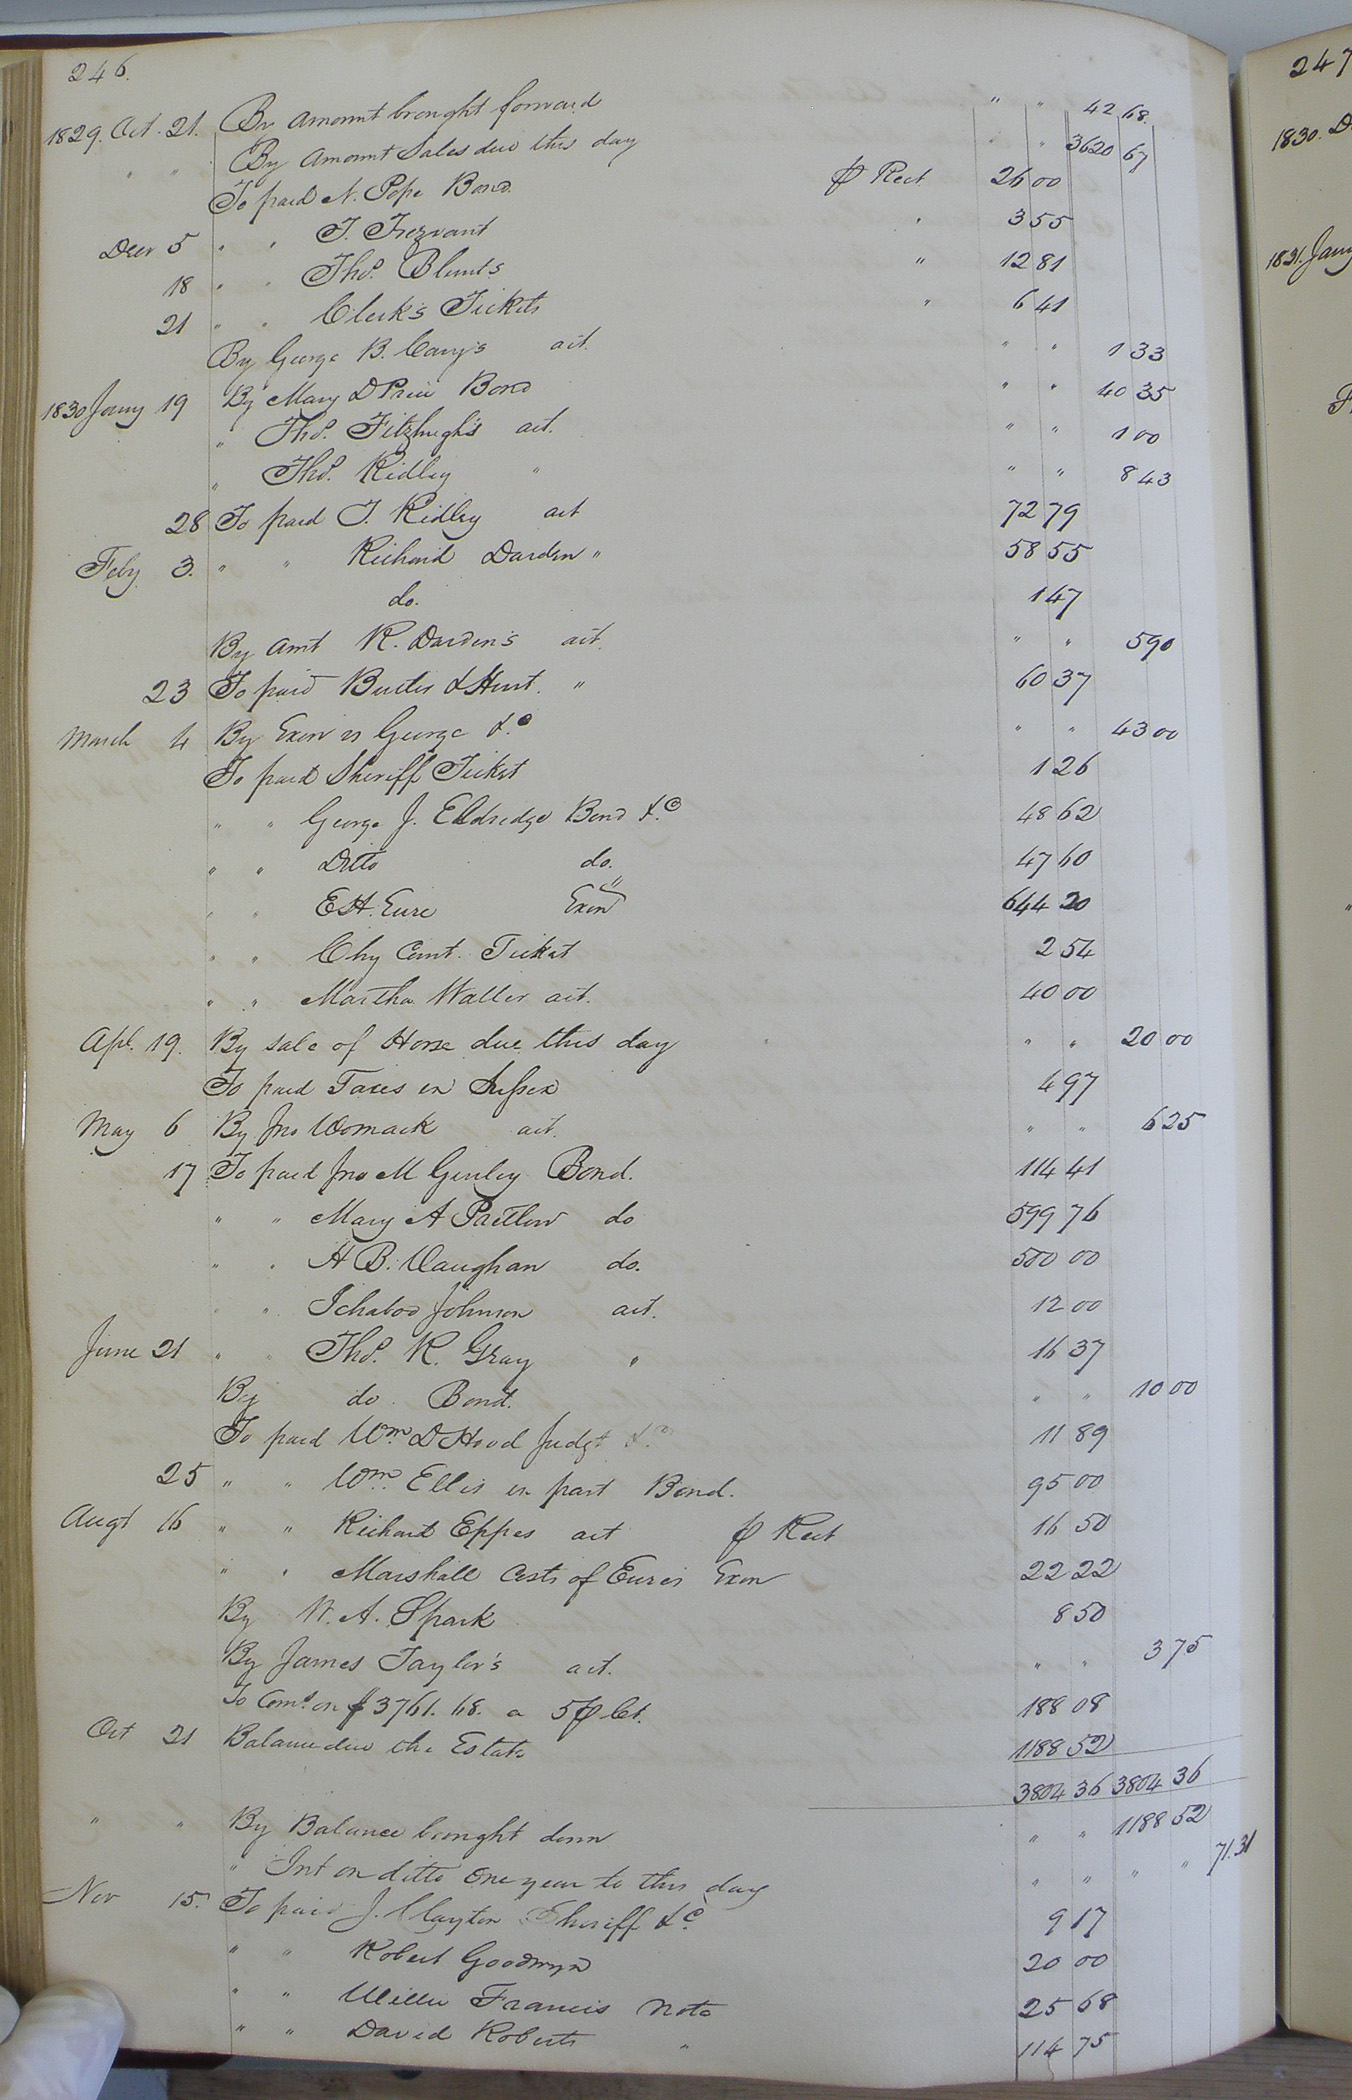 246.
1829. Oct. 21. By Amount brought forward " " 42 68
" " By Amount Sales due this day " " 3620 67
To paid N. Pope Bond ⅌ Rect. 26 00
Decr 5 " " T. Trezvant " 3 55
18 " " Thos. Blunts " 12 81
21 " " Clerk's Tickets " 6 41
By George B. Cary's act. " " 1 33
1830 Jany 19 By Mary D Price Bond " " 40 35
" Thos. Fitzhugh's act. " " 1 00
" Thos. Ridley " " " 8 43
28 To paid T. Ridley act 72 79
Feby 3. " " Richard Darden " 58 55
do. 1 47
By Amt R. Darden's act. " " 5 90
23 To paid Butts & Hunt. " 60 37
March 4 By Exon vs George &c. " " 43 00
To paid Sheriff Ticket 1 26
" " George J. Eldredge Bond &c 48 62
" " Ditto do. 47 60
" " E H. Eure Exon 644 20
" " Chy Court. Ticket 2 54
" " Martha Waller act. 40 00
Apl. 19. By sale of Horse due this day " " 20 00
To paid Taxes in Sussex 4 97
May 6 By Jno Womack act. " " 6 25
17 To paid Jno M Gurley Bond. 114 41
" " Mary A Partlow do 599 76
" " H B. Vaughan do. 500 00
" " Ichabod Johnson act. 12 00
June 21 " " Thos. R. Gray " 16 37
By do. Bond. " " 10 00
To paid Wm D Hood Judgt &c. 11 89
25 " " Wm. Ellis in part Bond. 95 00
Augt 16 " " Richard Eppes act ⅌ Rect 16 50
" " Marshall Costs of Eure's Exon 22 22
By W. A. Spark 8 50
By James Taylor's act. " " 3 75
To Coms. on $3761.68. a 5 ⅌ Ct. 188 08
Oct 21 Balance due the Estate 1188 52
3804 36 3804 36
" " By Balance brought down " " 1188 52
" Int on ditto one year to this day " " " " 71.31
Nov 15. To paid J. Clayton Sheriff &c. 9 17
" " Robert Goodwyn 20 00
" " Willie Francis Note 25 68
" " David Roberts " 114 75
247
1830. D
1831. Jany